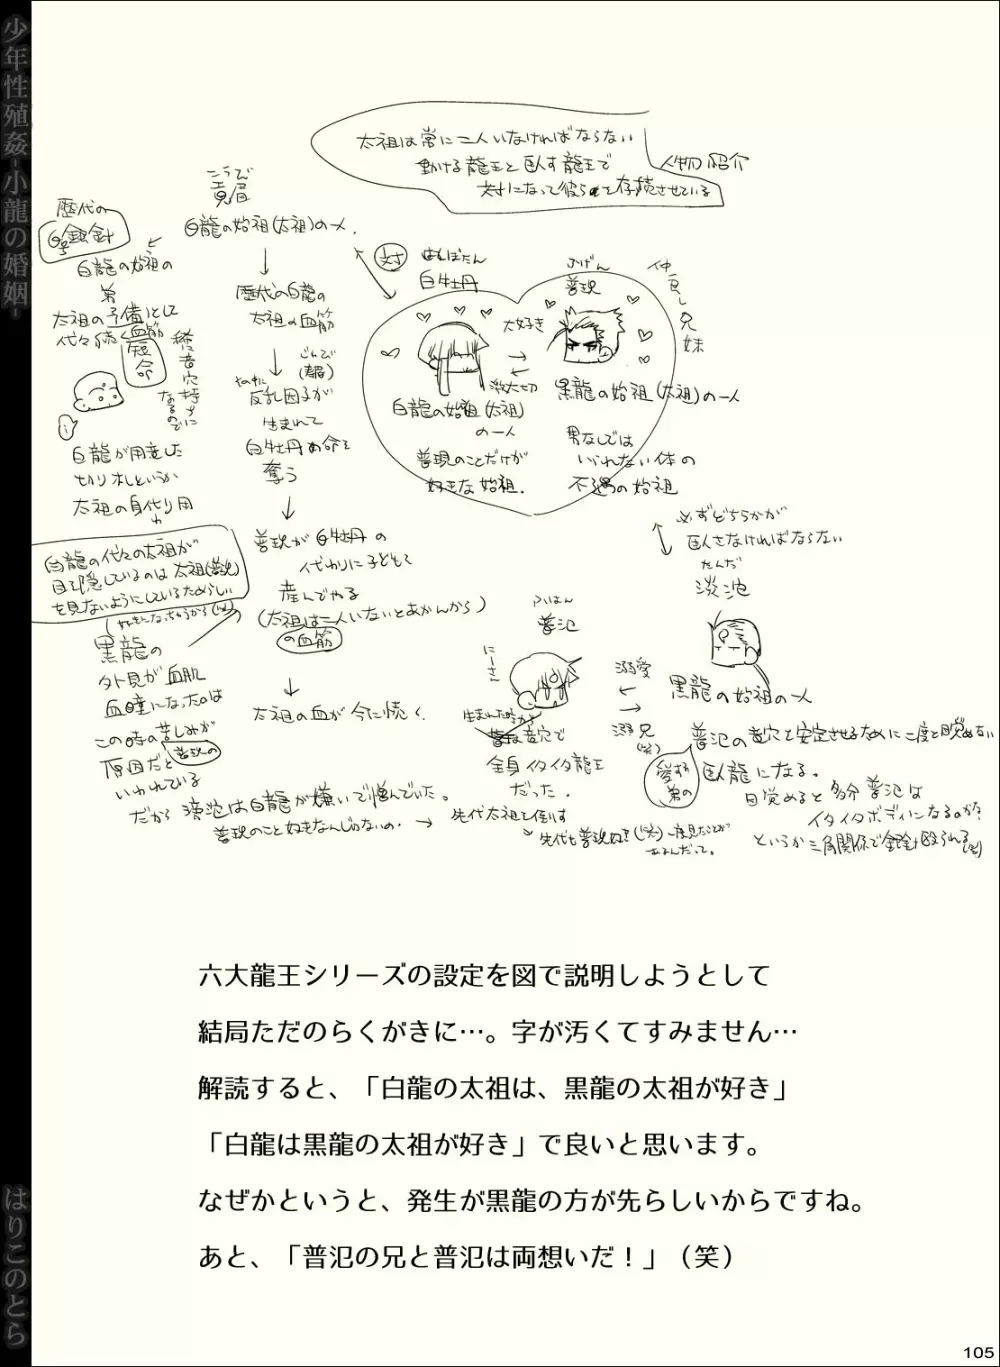 少年性殖姦-小龍の婚姻-
太祖は常に二人いなければならない
動ける龍王と臥す龍王で
対になって彼らを存続させている
人物紹介
こうび
白龍の始祖(太祖)の一人。
歴代の
銀針
白龍の始祖の
弟
太祖の予備として
代々続く血筋
短命
稀に竜穴持ちに
なるので
白龍が用意した
切り札というか
太祖の身代り用
歴代の白龍の
太祖の血筋
反乱因子が
生まれて
白牡丹の命を
奪う
普現が白牡丹の
代わりに子どもを
産んでやる
(太祖は二人いないとあかんから)
の血筋
太祖の血が今に続く。
対
はくぼたん
白牡丹
ふげん
普現
仲良し兄妹
大好き
激大切
白龍の始祖(太祖)
の一人
普現のことだけが
好きな始祖.
黒龍の始祖(太祖)の一人
男なしでは
いられない体の
不遇の始祖
必ずどちらかが
臥さなければならない
たんだ
淡沲
黒龍の始祖の一人
白龍の代々の太祖が
目を隠しているのは太祖(普現)
を見ないようにしているためらしい
(好きになっちゃうから(笑))
黒龍の
外見が血肌
血瞳になったのは
この時の苦しみが
普現の
原因だと
いわれている
ふはん
普氾
にーさん
溺愛
溺兄
(笑)
愛する
弟の
生まれた時から
竜穴で
全身イタイタ龍王
だった.
普氾の竜穴を安定させるために二度と目覚めない
臥龍になる。
目覚めると多分普氾は
イタイタボディになるのか?
というか三角関係で銀針殴られる(笑)
だから淡沲は白龍が嫌いで憎んでいた。
普現のこと好きなんじゃないの.
先代太祖を倒す
先代も普現好き(笑)一度見たことが
あるんだって。
六大龍王シリーズの設定を図で説明しようとして
結局ただのらくがきに…。字が汚くてすみません…
解読すると、「白龍の太祖は、黒龍の太祖が好き」
「白龍は黒龍の太祖が好き」で良いと思います。
なぜかというと、発生が黒龍の方が先らしいからですね。
あと、「普氾の兄と普氾は両想いだ！」（笑）
はりこのとら
105